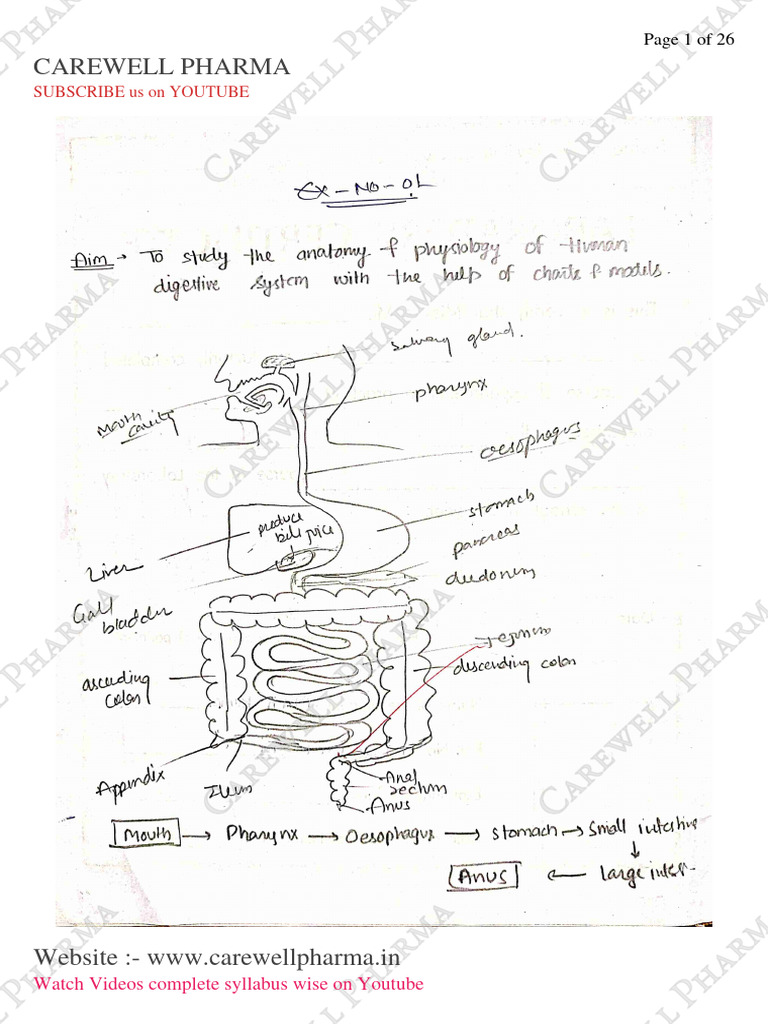 Page 1 of 26
CAREWELL PHARMA
SUBSCRIBE us on YOUTUBE
Ex - No - 01
Aim → To study the anatomy & physiology of Human
digestive system with the help of charts & models.
salivary gland.
pharynx
mouth
cavity
oesophagus
stomach
produce
bile juice
pancreas
Liver
duodenum
Gall
bladder
Jejunum
descending colon
ascending
colon
Appendix
Ileum
Anal
rectum
Anus
Mouth → Pharynx → Oesophagus → stomach → Small intestine
↓
Anus ← large intest-
Website :- www.carewellpharma.in
Watch Videos complete syllabus wise on Youtube
CAREWELL PHARMA